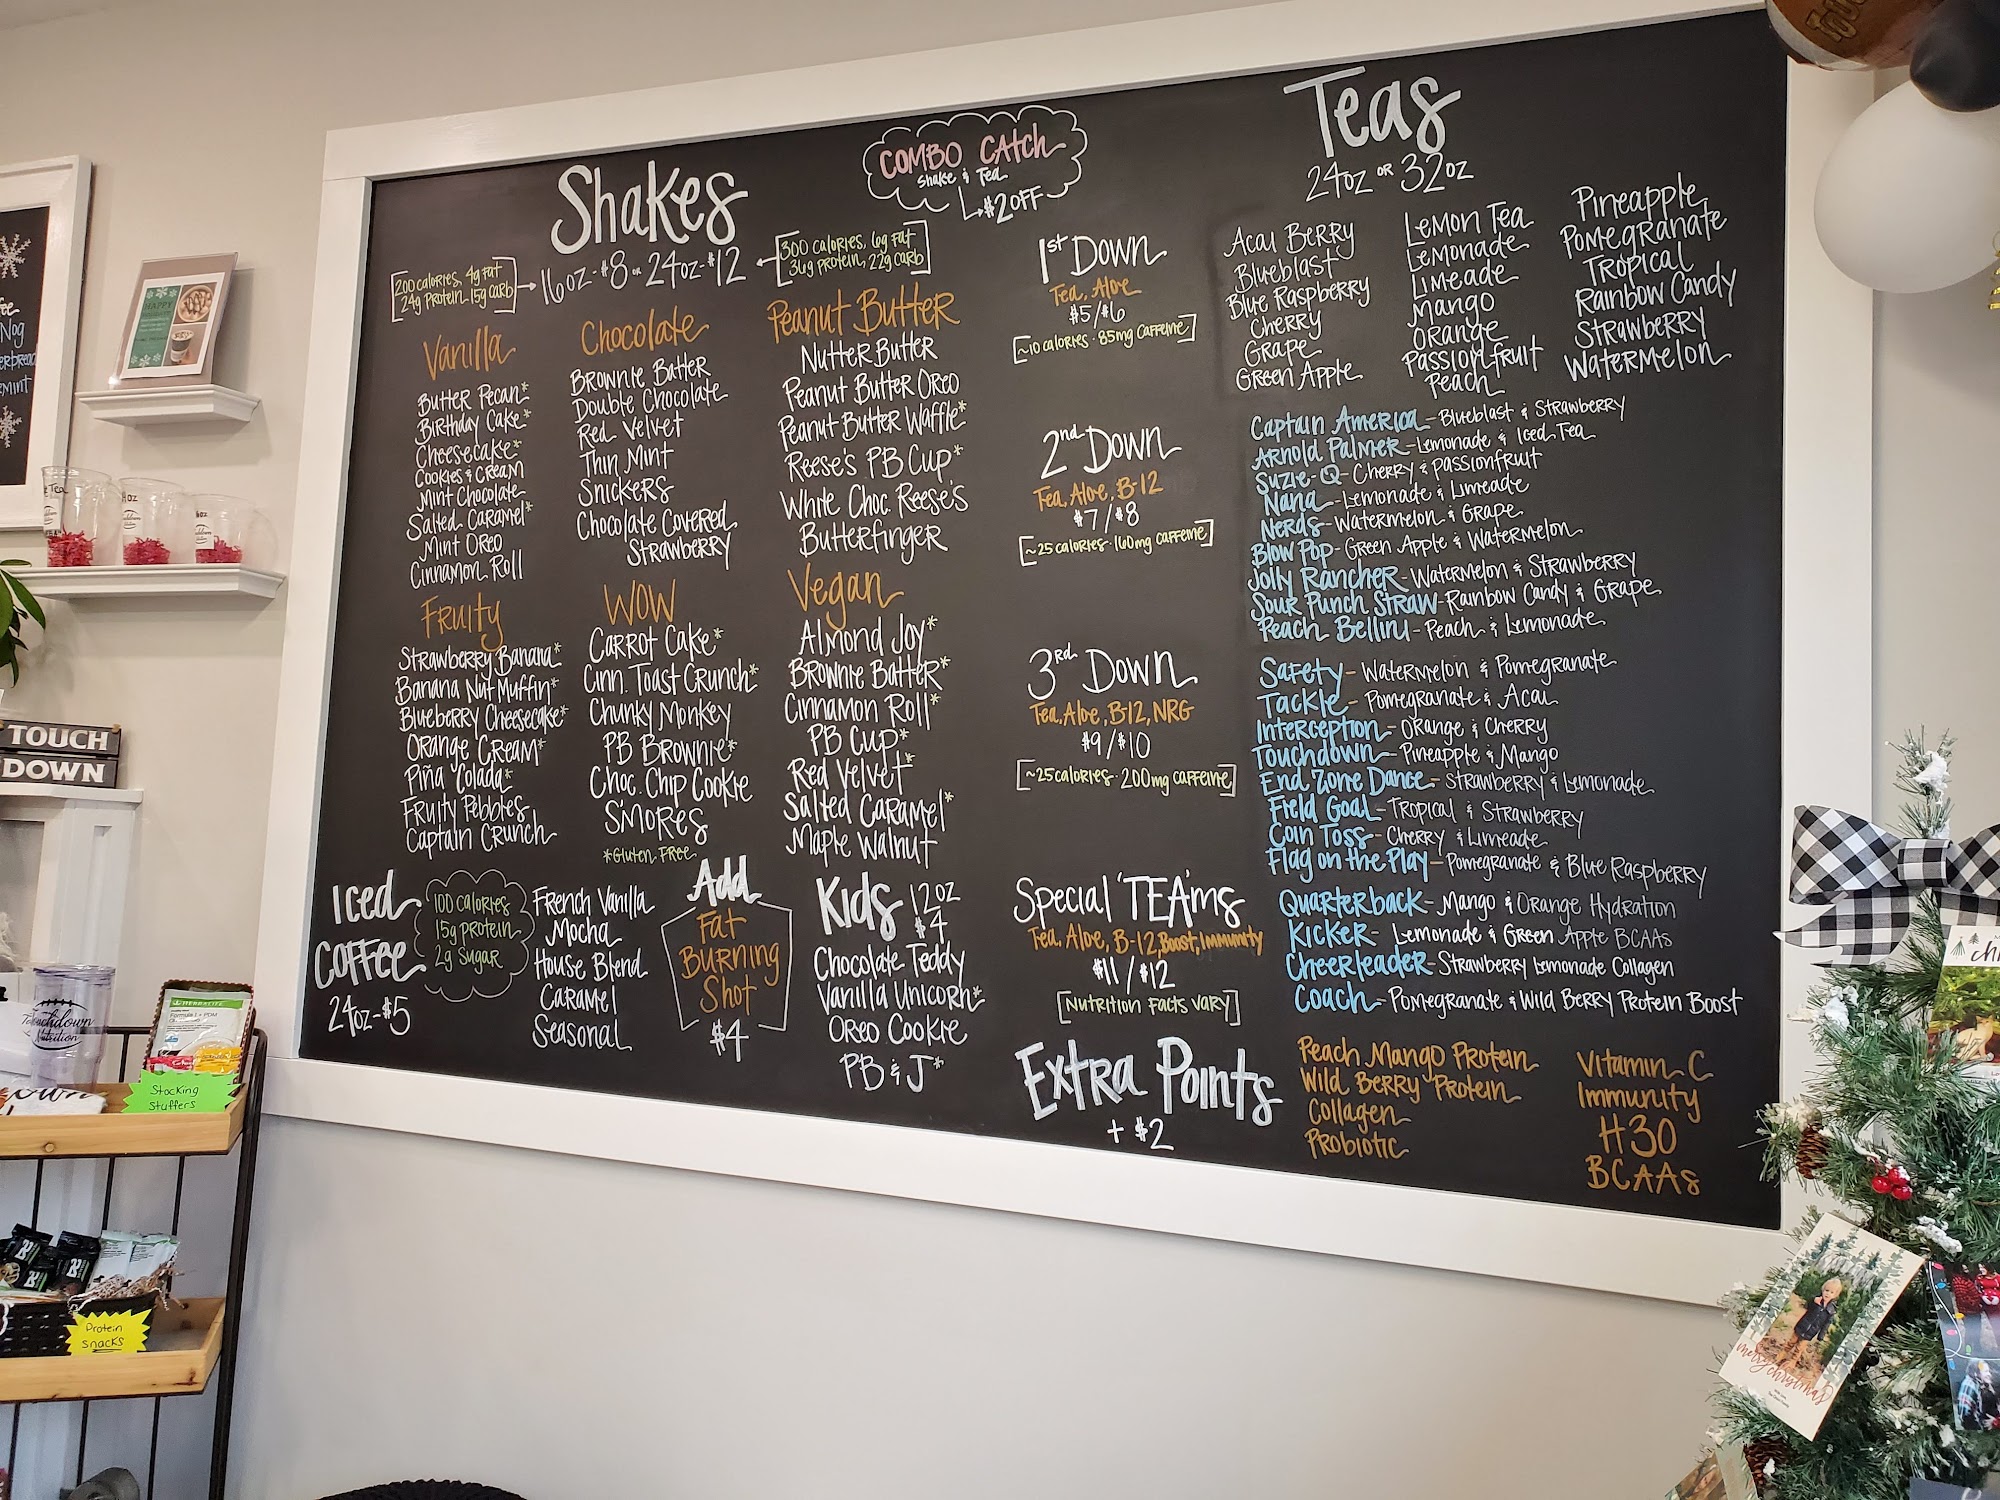 COMBO CAtch
Shake & Tea
$2 OFF
Shakes
16oz-$8 or 24oz-$12
200 calories, 4g fat
24g protein 15g carb
300 calories, 6g fat
36g protein, 22g carb
Vanilla
Butter Pecan*
Birthday Cake*
Cheesecake*
Cookies & Cream
Mint Chocolate
Salted Caramel*
Mint Oreo
Cinnamon Roll
Chocolate
Brownie Batter
Double Chocolate
Red Velvet
Thin Mint
Snickers
Chocolate Covered
Strawberry
Peanut Butter
Nutter Butter
Peanut Butter Oreo
Peanut Butter Waffle*
Reese's PB Cup*
White Choc. Reese's
Butterfinger
Fruity
Strawberry Banana*
Banana Nut Muffin*
Blueberry Cheesecake*
Orange Cream*
Piña Colada*
Fruity Pebbles
Captain Crunch
WOW
Carrot Cake*
Cinn. Toast Crunch*
Chunky Monkey
PB Brownie*
Choc. Chip Cookie
S'mores
*Gluten Free
Vegan
Almond Joy*
Brownie Batter*
Cinnamon Roll*
PB Cup*
Red Velvet*
Salted Caramel*
Maple Walnut
Iced
Coffee
24oz-$5
100 calories
15g protein
2g sugar
French Vanilla
Mocha
House Blend
Caramel
Seasonal
Add
Fat
Burning
Shot
$4
Kids 12oz
$4
Chocolate Teddy
Vanilla Unicorn*
Oreo Cookie
PB & J*
Teas
24oz or 32oz
1st Down
Tea, Aloe
$5/$6
~10 calories · 85mg caffeine
2nd Down
Tea, Aloe, B-12
$7/$8
~25 calories · 160mg caffeine
3rd Down
Tea, Aloe, B-12, NRG
$9/$10
~25 calories · 200mg caffeine
Special 'TEA'ms
Tea, Aloe, B-12, Boost, Immunity
$11/$12
Nutrition Facts Vary
Acai Berry
Blueblast
Blue Raspberry
Cherry
Grape
Green Apple
Lemon Tea
Lemonade
Limeade
Mango
Orange
Passionfruit
Peach
Pineapple
Pomegranate
Tropical
Rainbow Candy
Strawberry
Watermelon
Captain America-Blueblast & Strawberry
Arnold Palmer-Lemonade & Iced Tea
Suzie-Q-Cherry & Passionfruit
Nana-Lemonade & Limeade
Nerds-Watermelon & Grape
Blow Pop-Green Apple & Watermelon
Jolly Rancher-Watermelon & Strawberry
Sour Punch Straw-Rainbow Candy & Grape
Peach Bellini-Peach & Lemonade
Safety-Watermelon & Pomegranate
Tackle-Pomegranate & Acai
Interception-Orange & Cherry
Touchdown-Pineapple & Mango
End Zone Dance-Strawberry & Lemonade
Field Goal-Tropical & Strawberry
Coin Toss-Cherry & Limeade
Flag on the Play-Pomegranate & Blue Raspberry
Quarterback-Mango & Orange Hydration
Kicker-Lemonade & Green Apple BCAAs
Cheerleader-Strawberry Lemonade Collagen
Coach-Pomegranate & Wild Berry Protein Boost
Extra Points
+ $2
Peach Mango Protein
Wild Berry Protein
Collagen
Probiotic
Vitamin C
Immunity
H30
BCAAs
TOUCH
DOWN
Touchdown
Nutrition
HERBALIFE
Stocking
Stuffers
Protein
snacks
merry christmas